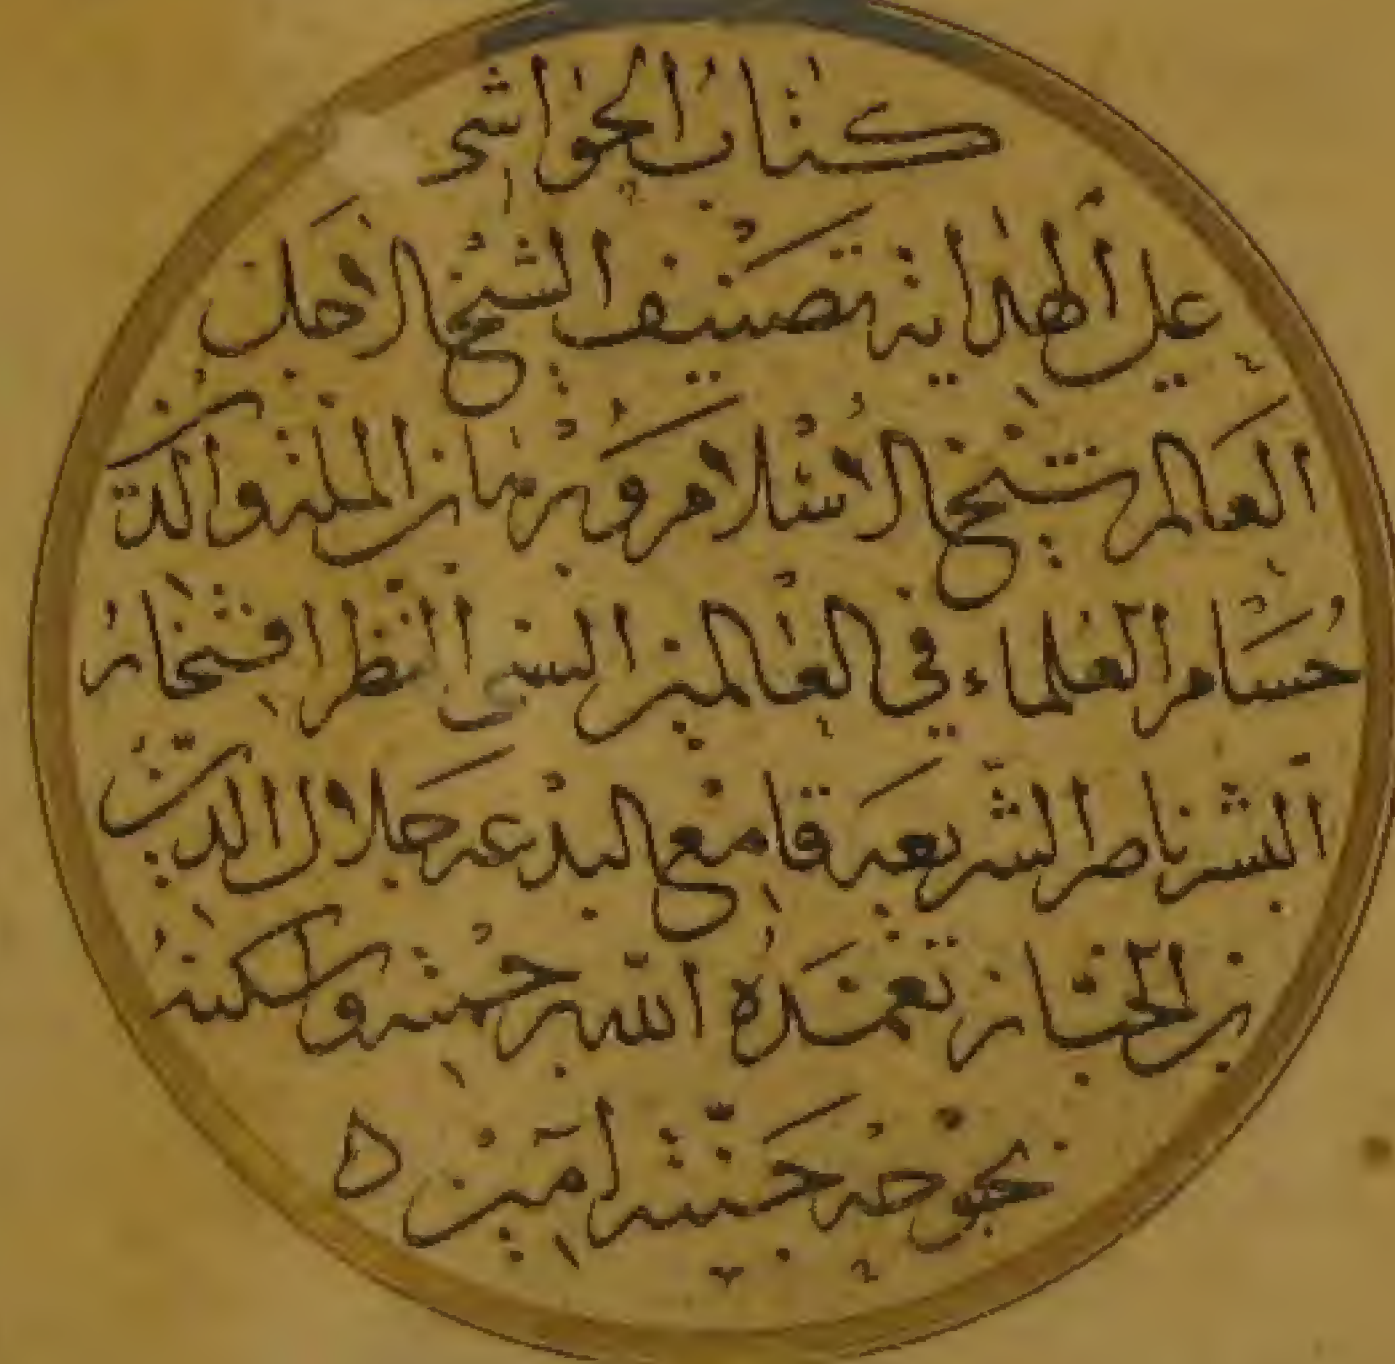 كتاب الحواشي
على الهداية تصنيف الشيخ الاجل
العالم شيخ الاسلام وبرهان الملة والدين
حسام العلماء في العالمين السني النظر افتخار
البشر ناصر الشريعة قامع البدعة جلال الدين
بن الخباز تغمده الله برحمته واسكنه
بحبوحة جنته امين ه